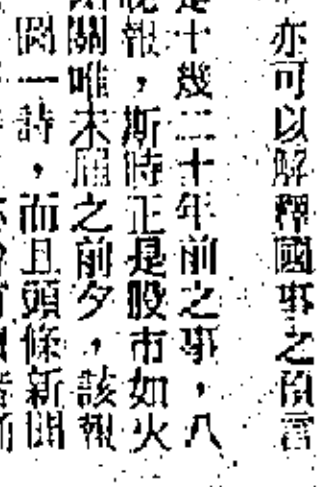 亦可以解釋國事之
十幾二十年前之事，八
報，斯時正是股市如火
關唯未雁之前夕，該報
圖一詩，而且頭條新聞